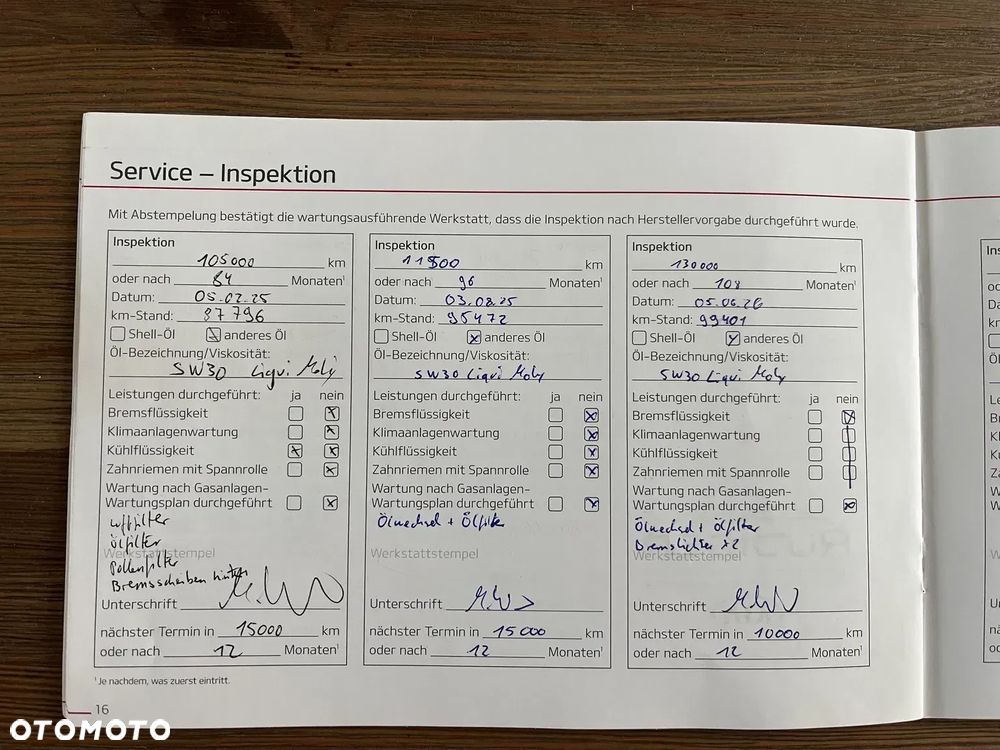 Service – Inspektion
Mit Abstempelung bestätigt die wartungsausführende Werkstatt, dass die Inspektion nach Herstellervorgabe durchgeführt wurde.
Inspektion
105000 km
oder nach 84 Monaten¹
Datum: 05.02.25
km-Stand: 87796
Shell-Öl anderes Öl
Öl-Bezeichnung/Viskosität:
5W30 Liqui Moly
Leistungen durchgeführt: ja nein
Bremsflüssigkeit
Klimaanlagenwartung
Kühlflüssigkeit
Zahnriemen mit Spannrolle
Wartung nach Gasanlagen-
Wartungsplan durchgeführt
Luftfilter
ölfilter
Werkstattstempel
Pollenfilter
Bremsscheiben hinten
Unterschrift
nächster Termin in 15000 km
oder nach 12 Monaten¹
Inspektion
11500 km
oder nach 96 Monaten¹
Datum: 03.08.25
km-Stand: 95472
Shell-Öl anderes Öl
Öl-Bezeichnung/Viskosität:
5W30 Liqui Moly
Leistungen durchgeführt: ja nein
Bremsflüssigkeit
Klimaanlagenwartung
Kühlflüssigkeit
Zahnriemen mit Spannrolle
Wartung nach Gasanlagen-
Wartungsplan durchgeführt
Ölwechsel + Ölfilter
Werkstattstempel
Unterschrift
nächster Termin in 15000 km
oder nach 12 Monaten¹
Inspektion
130000 km
oder nach 108 Monaten¹
Datum: 05.06.26
km-Stand: 99401
Shell-Öl anderes Öl
Öl-Bezeichnung/Viskosität:
5W30 Liqui Moly
Leistungen durchgeführt: ja nein
Bremsflüssigkeit
Klimaanlagenwartung
Kühlflüssigkeit
Zahnriemen mit Spannrolle
Wartung nach Gasanlagen-
Wartungsplan durchgeführt
Ölwechsel + Ölfilter
Bremslichter x2
Werkstattstempel
Unterschrift
nächster Termin in 10000 km
oder nach 12 Monaten¹
¹Je nachdem, was zuerst eintritt.
16
OTOMOTO